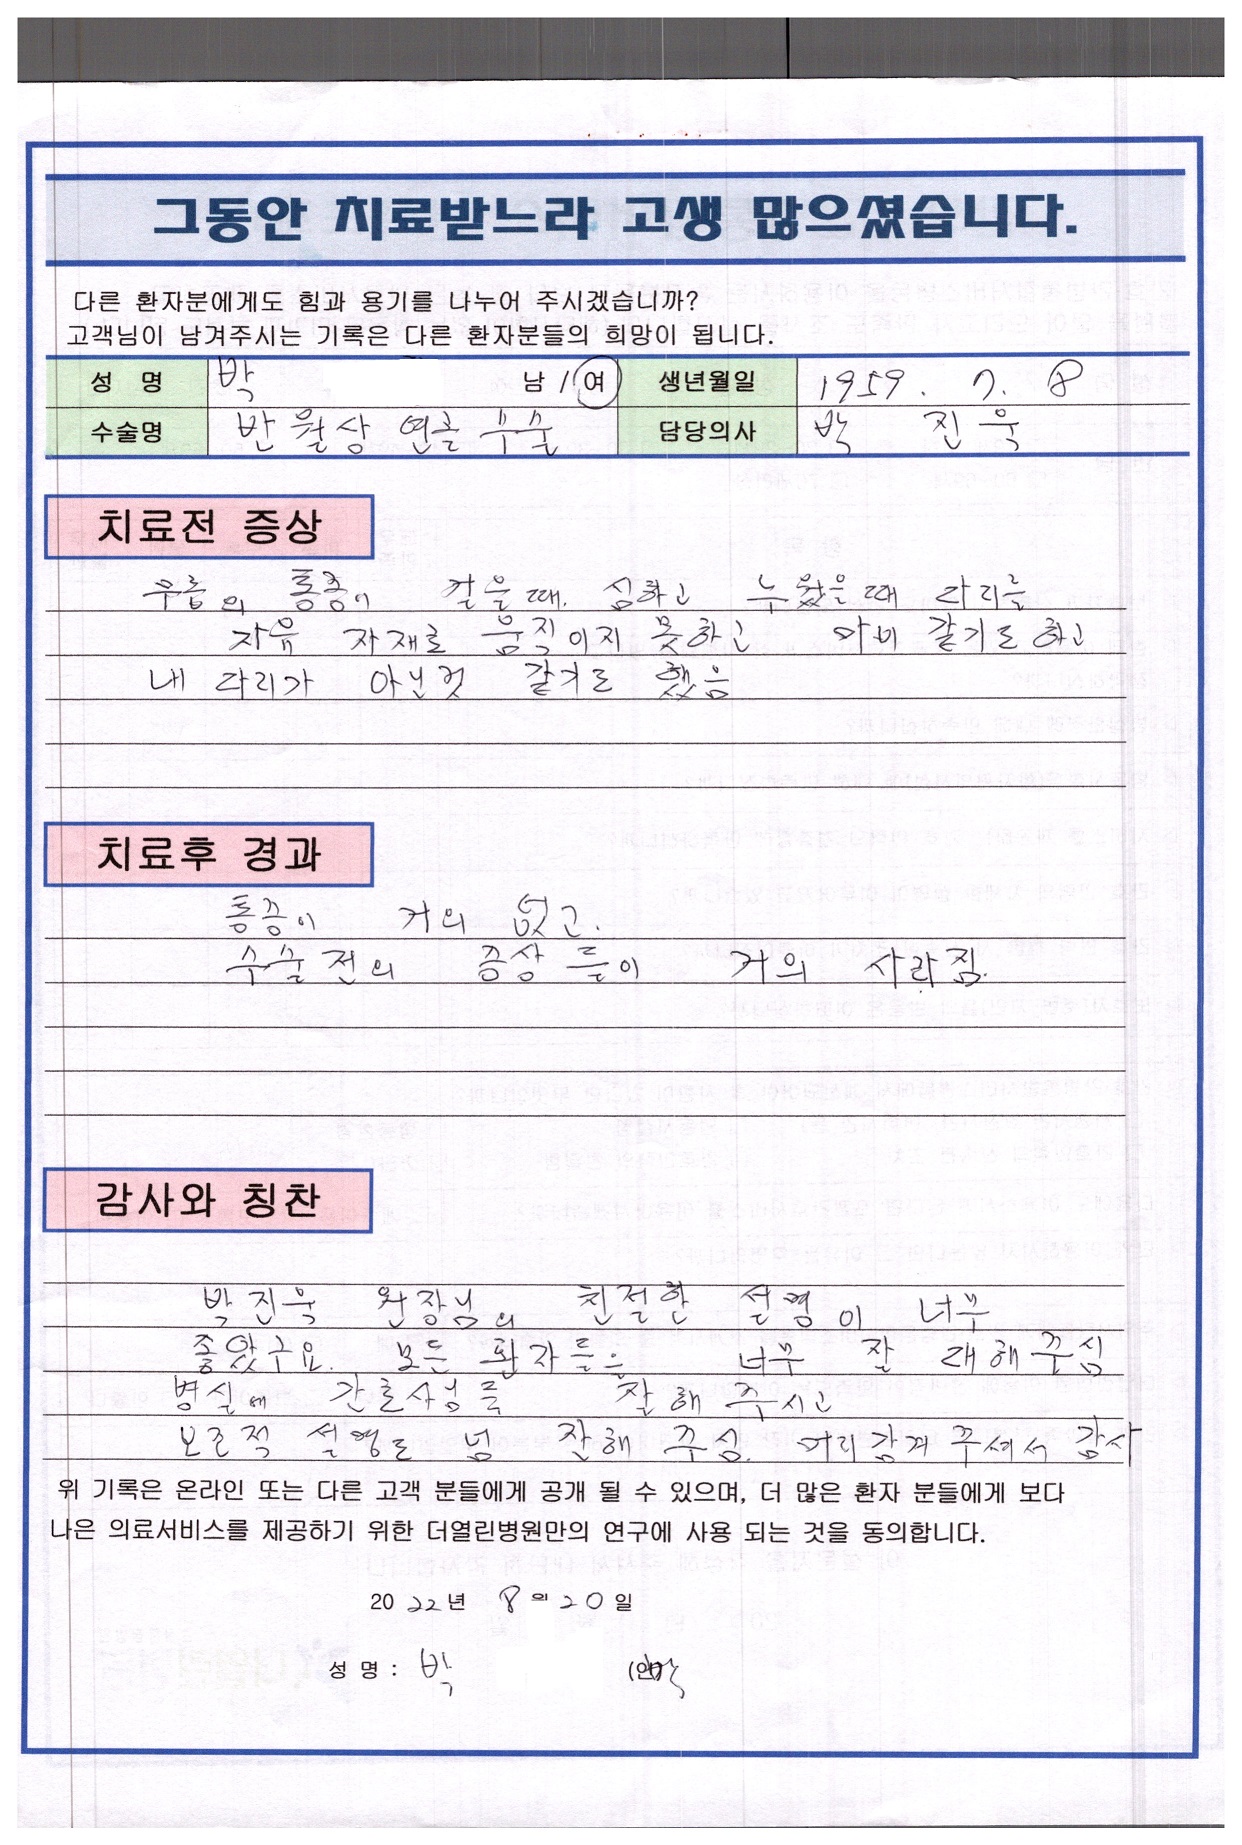 그동안 치료받느라 고생 많으셨습니다.
다른 환자분에게도 힘과 용기를 나누어 주시겠습니까?
고객님이 남겨주시는 기록은 다른 환자분들의 희망이 됩니다.
성 명 박 남 / 여 생년월일 1959. 7. 8
수술명 반월상 연골 수술 담당의사 박 진 욱
치료전 증상
무릎의 통증이 걸을때. 심하고 누웠을때 다리를
자유 자재로 움직이지 못하고 마비 같기도 하고
내 다리가 아닌것 같기도 했음
치료후 경과
통증이 거의 없고.
수술전의 증상들이 거의 사라짐.
감사와 칭찬
박진욱 원장님의 친절한 설명이 너무
좋았구요. 모든 환자들을 너무 잘 대해 주심
병실에 간호사님들 잘해 주시고
설명도 넘 잘해 주심. 주셔서 감사
위 기록은 온라인 또는 다른 고객 분들에게 공개 될 수 있으며, 더 많은 환자 분들에게 보다
나은 의료서비스를 제공하기 위한 더열린병원만의 연구에 사용 되는 것을 동의합니다.
2022년 8월 20일
성 명 : 박 (인) 박